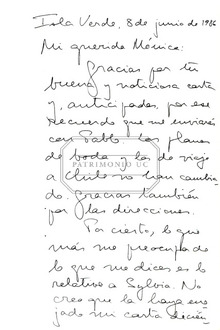 Isla Verde, 8 de junio de 1986
Mi querida Mónica:
Gracias por tu
buena y noticiosa carta
y, anticipadas, por ese
recuerdo que me enviarás
con Pablo. Los planes
de boda y los de viaje
a Chile no han cambia-
do. Gracias también
por las direcciones.
PATRIMONIO UC
Por cierto, lo que
más me preocupa de
lo que me dices es lo
relativo a Sylvia. No
creo que la haya eno-
jado mi carta